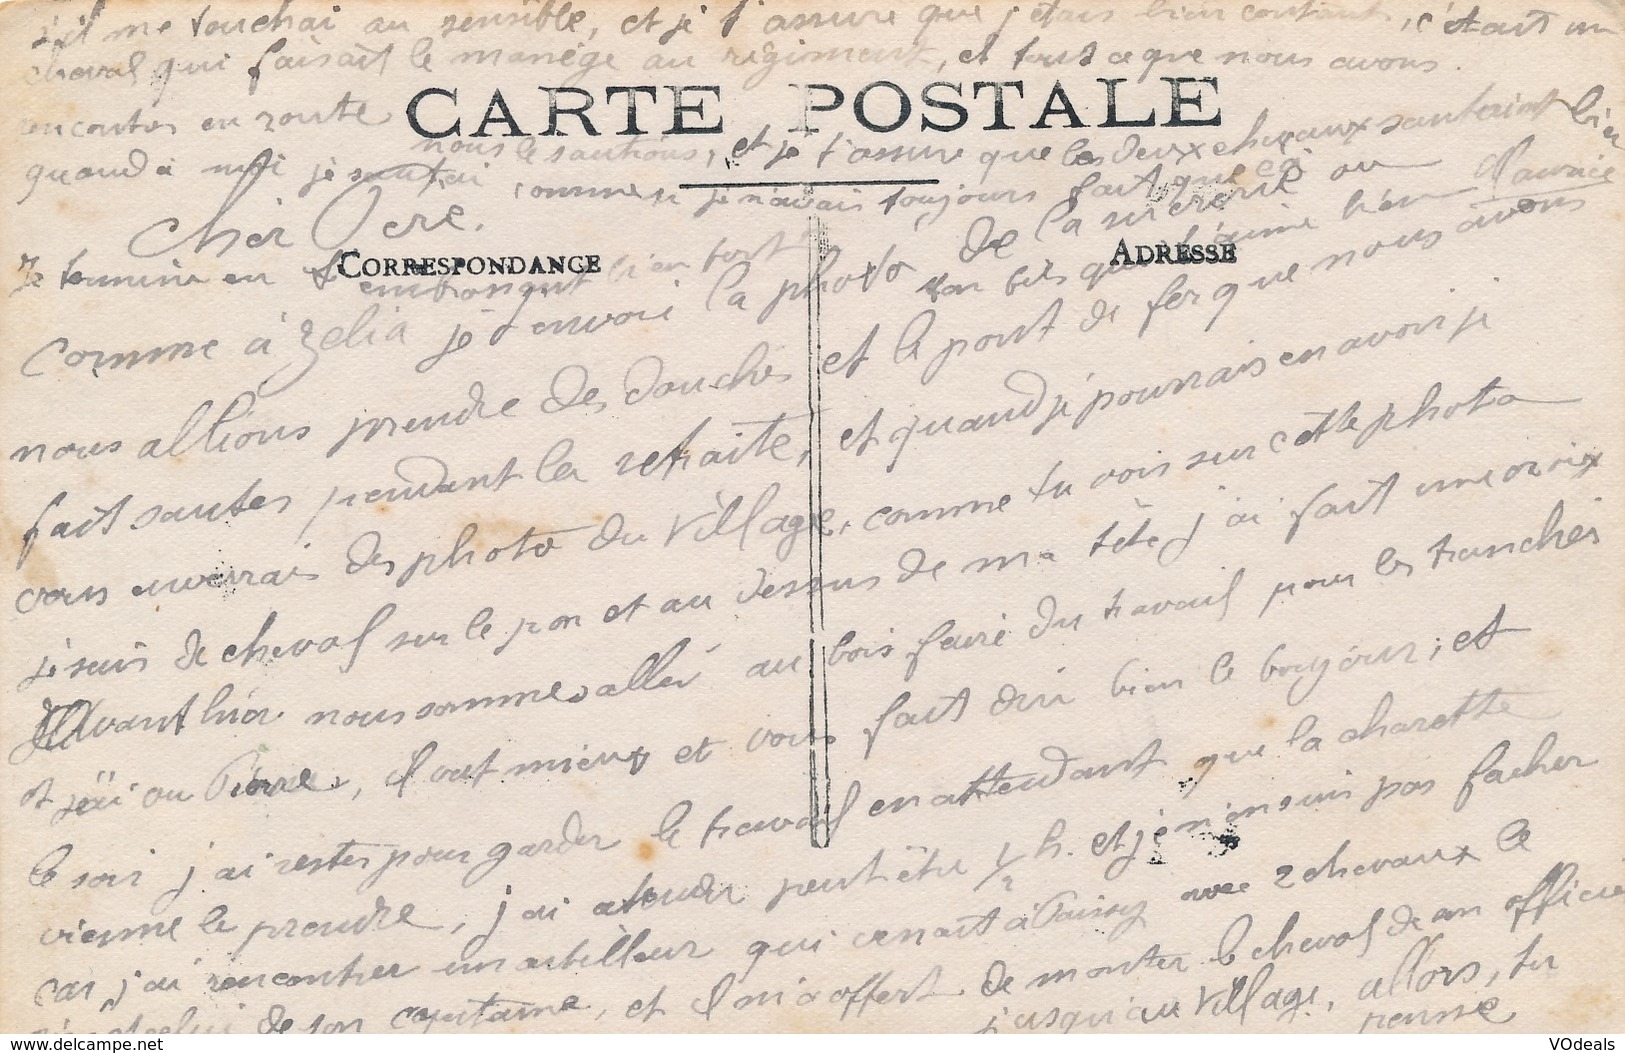 s'il me touchai au sensible, et je t'assure que j'etais bien content, c'était un
cheval qui faisait le manège au régiment, et tout ce que nous avons
rencontrer en route
CARTE POSTALE
nous le sautions, et je t'assure que les deux chevaux sautaient bien
quand à moi je sautai comme si je n'avais toujours fait que ça
Cher Père.
Je termine en t'embrassant bien fort ton fils qui t'aime bien Maurice
CORRESPONDANCE
ADRESSE
Comme à Zelia je t'envoie la photo de la sucrerie ou
nous allions prendre des douches et le pont de fer que nous avons
fait sauter pendant la retraite, et quand je pourrais en avoir je
vous enverrais des photos du village, comme tu vois sur cette photo
je suis de cheval sur le pon et au dessus de ma tête j'ai fait une croix
Avant hier nous somme allés au bois faire du travail pour les tranchés
et j'ai vu Pierre, il vat mieux et vous fait dire bien le bonjour, et
le soir j'ai rester pour garder le travail en attendant que la charette
vienne le prendre, j'ai atendu peut être 1/2 h. et je n'en suis pas facher
car j'ai rencontrer un artilleur qui venait à Paissy avec 2 chevaux le
sien et celui de son capitaine, et il m'a offert de monter le cheval de son officier
jusqu'au village, allors, tu
pense
VOdeals